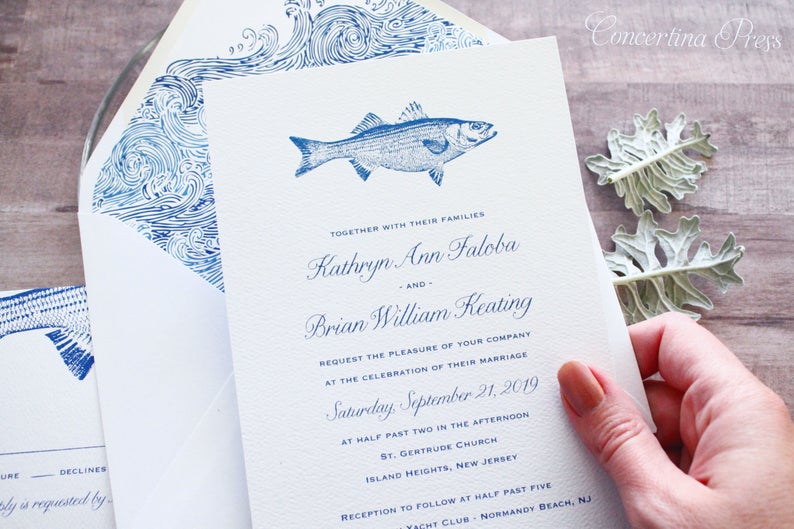 Concertina Press
TOGETHER WITH THEIR FAMILIES
Kathryn Ann Faloba
- AND -
Brian William Keating
REQUEST THE PLEASURE OF YOUR COMPANY
AT THE CELEBRATION OF THEIR MARRIAGE
Saturday, September 21, 2019
AT HALF PAST TWO IN THE AFTERNOON
ST. GERTRUDE CHURCH
ISLAND HEIGHTS, NEW JERSEY
RECEPTION TO FOLLOW AT HALF PAST FIVE
YACHT CLUB - NORMANDY BEACH, NJ
DECLINES
is requested